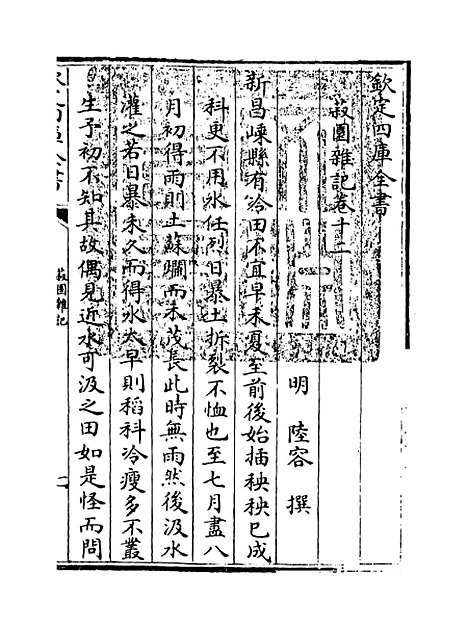 欽定四庫全書
菽園雜記卷十二
明 陸容 撰
新昌嵊縣有冷田不宜早禾夏至前後始插秧秧已成
科更不用水任烈日暴土坼裂不恤也至七月盡八
月初得雨則土蘇爛而禾茂長此時無雨然後汲水
灌之若日暴未久而得水太早則稻科冷瘦多不叢
生予初不知其故偶見近水可汲之田如是怪而問
菽園雜記